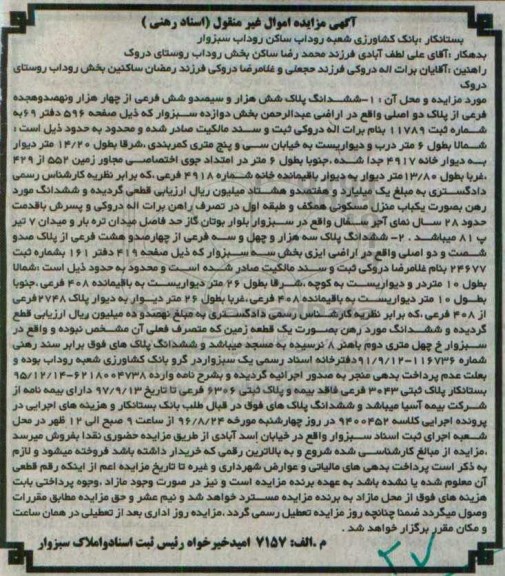 آگهی مزایده اموال غیر منقول (اسناد رهنی )
بستانکار :بانک کشاورزی شعبه روداب ساکن روداب سبزوار
بدهکار :آقای علی لطف آبادی فرزند محمد رضا ساکن بخش روداب روستای دروک
راهنین :آقایان برات اله دروکی فرزند حجعلی و غلامرضا دروکی فرزند رمضان ساکنین بخش روداب روستای
دروک
مورد مزایده و محل آن :۱-ششدانگ پلاک شش هزار و سیصدو شش فرعی از چهار هزار ونهصدوهجده
فرعی از پلاک دو اصلی واقع در اراضی عبدالرحمن بخش دوازده سبزوار که ذیل صفحه ۵۹۶ دفتر ۶۹به
شماره ثبت ۱۱۷۸۹ بنام برات اله دروکی ثبت و سند مالکیت صادر شده و محدود به حدود ذیل است ؛
شمالا بطول ۶ متر درب و دیواریست به خیابان سی و پنج متری کمربندی ،شرقا بطول ۱۴/۲۰ متر دیوار
به دیوار خانه ۴۹۱۷ جدا شده ،جنوبا بطول ۶ متر در امتداد جوی اختصاصی مجاور زمین ۵۵۲ از ۴۲۹
،غربا بطول ۱۳/۸۰ متر دیوار به دیوار باقیمانده خانه شماره ۴۹۱۸ فرعی ،که برابر نظریه کارشناس رسمی
دادگستری به مبلغ یک میلیارد و هفتصدو هشتاد میلیون ریال ارزیابی قطعی گردیده و ششدانگ مورد
رهن بصورت یکباب منزل مسکونی همکف و طبقه اول در تصرف راهن برات اله دروکی و پسرش باقدمت
حدود ۲۸ سال نمای آجر سفال واقع در سبزوار بلوار بوتان گاز حد فاصل میدان تره بار و میدان ۷ تیر
پ ۸۱ میباشد . ۲- ششدانگ پلاک سه هزار و چهل و سه فرعی از چهارصدو هشت فرعی از پلاک صدو
شصت و دو اصلی واقع در اراضی ایزی بخش سه سبزوار که ذیل صفحه ۴۱۹ دفتر ۱۶۱ بشماره ثبت
۲۴۶۷۷ بنام غلامرضا دروکی ثبت و سند مالکیت صادر شده است و محدود به حدود ذیل است ؛شمالا
بطول ۱۰ متردر و دیواریست به کوچه ،شرقا بطول ۲۶ متر دیواریست به باقیمانده ۴۰۸ فرعی ،جنوبا
بطول ۱۰ متر دیواریست به باقیمانده ۴۰۸ فرعی ،غربا بطول ۲۶ متر دیوار به دیوار پلاک ۲۷۴۸فرعی
از ۴۰۸ فرعی ،که برابر نظریه کارشناس رسمی دادگستری به مبلغ نهصدو ده میلیون ریال ارزیابی قطع
گردیده و ششدانگ مورد رهن بصورت یک قطعه زمین که متصرف فعلی آن مشخص نبوده و واقع در
سبزوار خ چهل متری دوم باهنر ۸ نرسیده به مسجد میباشد و ششدانگ پلاک های فوق برابر سند رهنی
شماره ۱۱۶۷۳۶-۹۱/۹/۱۲دفترخانه اسناد رسمی یک سبزواردر گرو بانک کشاورزی شعبه روداب بوده و
بعلت عدم پرداخت بدهی منجر به صدور اجرائیه گردیده و بشرح نامه وارده ۶۲۱۸۰۰۴۷۳۸-۹۵/۱۲/۱۴
بستانکار پلاک ثبتی ۳۰۴۳ فرعی فاقد بیمه و پلاک ثبتی ۶۳۰۶ فرعی تا تاریخ ۹۷/۹/۱۳ دارای بیمه نامه از
شرکت بیمه آسیا میباشد و ششدانگ پلاک های فوق در قبال طلب بانک بستانکار و هزینه های اجرایی در
پرونده اجرایی کلاسه ۹۴۰۰۴۵۲ در روز چهارشنبه مورخه ۹۶/۸/۲۴ از ساعت ۹ صبح الی ۱۲ ظهر در محل
شعبه اجرای ثبت اسناد سبزوار واقع در خیابان اسد آبادی از طریق مزایده حضوری نقدا بفروش میرسد
،مزایده از مبالغ کارشناسی شده شروع و به بالاترین رقمی که خریدار داشته باشد فروخته میشود و لازم
به ذکر است پرداخت بدهی های مالیاتی و عوارض شهرداری و غیره تا تاریخ مزایده اعم از اینکه رقم قطعی
آن معلوم شده یا نشده باشد به عهده برنده مزایده است و نیز در صورت وجود مازاد ،وجوه پرداختی بابت
هزینه های فوق از محل مازاد به برنده مزایده مسترد خواهد شد و نیم عشر و حق مزایده مطابق مقررات
وصول میگردد ضمنا چنانچه روز مزایده تعطیل رسمی گردد ،مزایده روز اداری بعد از تعطیلی در همان ساعت
و مکان مقرر برگزار خواهد شد .
م .الف: ۷۱۵۷ امیدخیرخواه رئیس ثبت اسنادواملاک سبزوار
۲۷